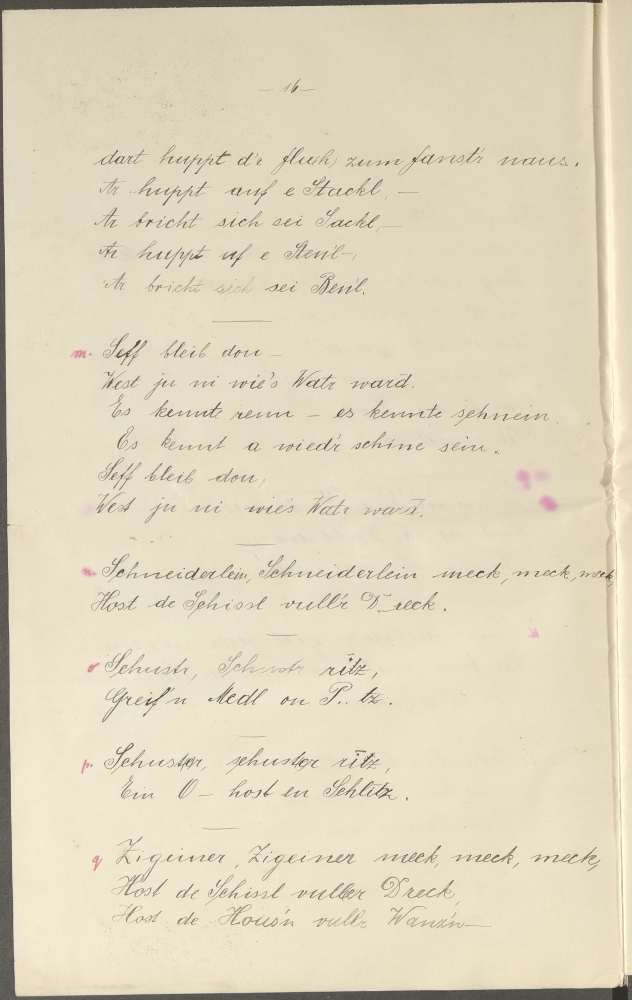 — 16 —
dart huppt d'r fluch zum fanst'r naus.
Ar huppt auf e Stackl, —
Ar bricht sich sei Sackl, —
Ar huppt uf e Stenl —,
Ar bricht sich sei Benl.
m. Seff bleib dou —
West ju ni wie's Watr ward.
Es kennte renn — es kennte schnein.
Es kennt a wied'r schine sein.
Seff bleib dou,
West ju ni wie's Watr ward.
n. Schneiderlein, Schneiderlein meck, meck, meck,
Host de Schissl vull'r D_reck.
o Schustr, Schustr ritz,
Greif'n Medl on P.. tz.
p. Schuster, schuster ritz,
Ein O — host en Schlitz.
q Zigeiner, Zigeiner meck, meck, meck,
Host de Schissl vuller Dreck,
Host de Hous'n vullr Wanz'n —